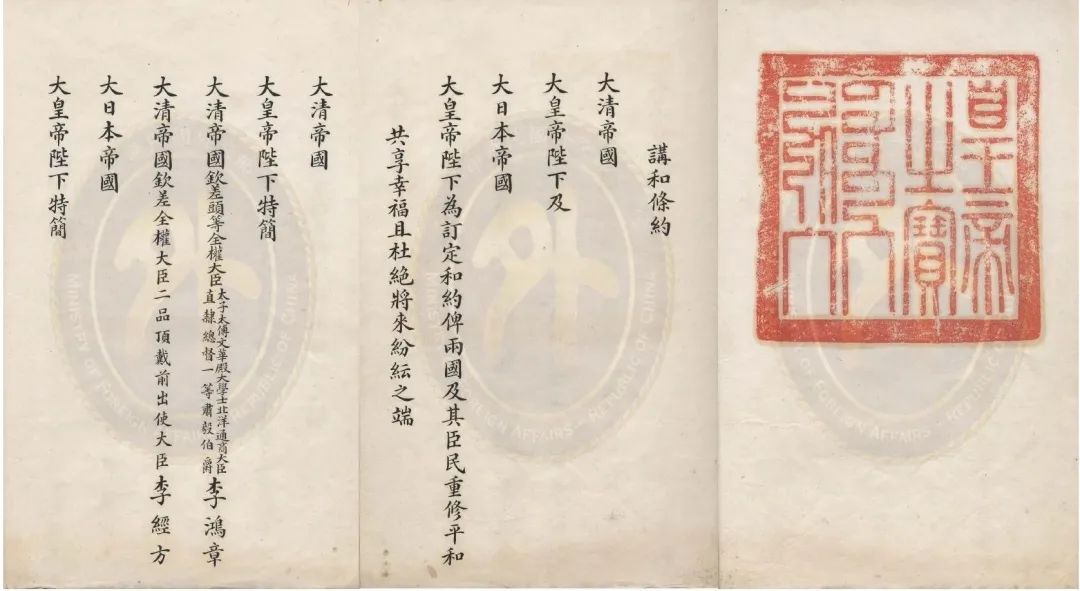 皇帝之寶
講和條約
大清帝國
大皇帝陛下及
大日本帝國
大皇帝陛下為訂定和約俾兩國及其臣民重修平和
共享幸福且杜絕將來紛紜之端
大清帝國
大皇帝陛下特簡
大清帝國欽差頭等全權大臣太子太傅文華殿大學士北洋通商大臣直隸總督一等肅毅伯爵李鴻章
大清帝國欽差全權大臣二品頂戴前出使大臣李經方
大日本帝國
大皇帝陛下特簡
MINISTRY OF FOREIGN AFFAIRS - REPUBLIC OF CHINA